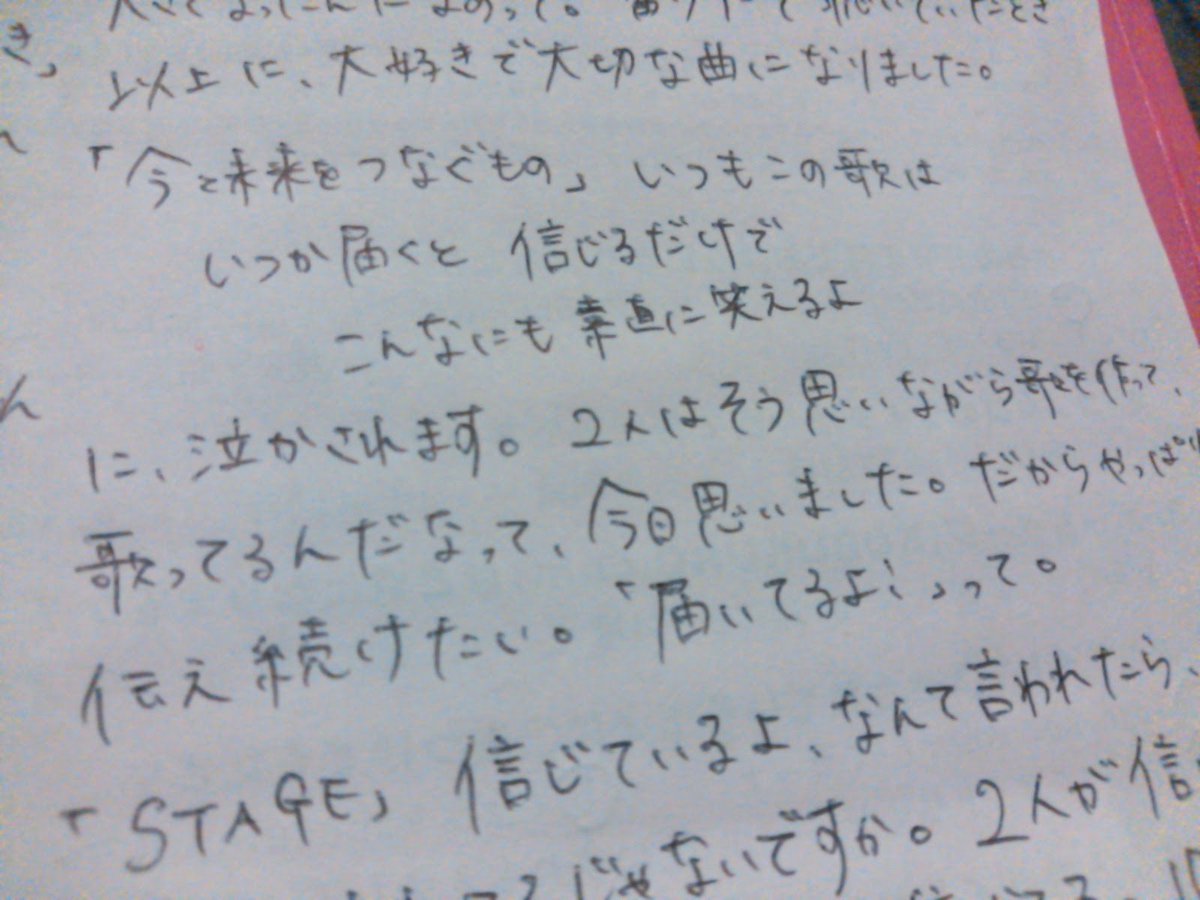 以上に、大好きで大切な曲になりました。
「今と未来をつなぐもの」 いつもこの歌は
いつか届くと 信じるだけで
こんなにも 素直に笑えるよ
に、泣かされます。2人はそう思いながら歌を作って、
歌ってるんだなって、今日思いました。だからやっぱり
伝え続けたい。「届いてるよ!」って。
「STAGE」 信じているよ、なんて言われたら、
じゃないですか。2人が信